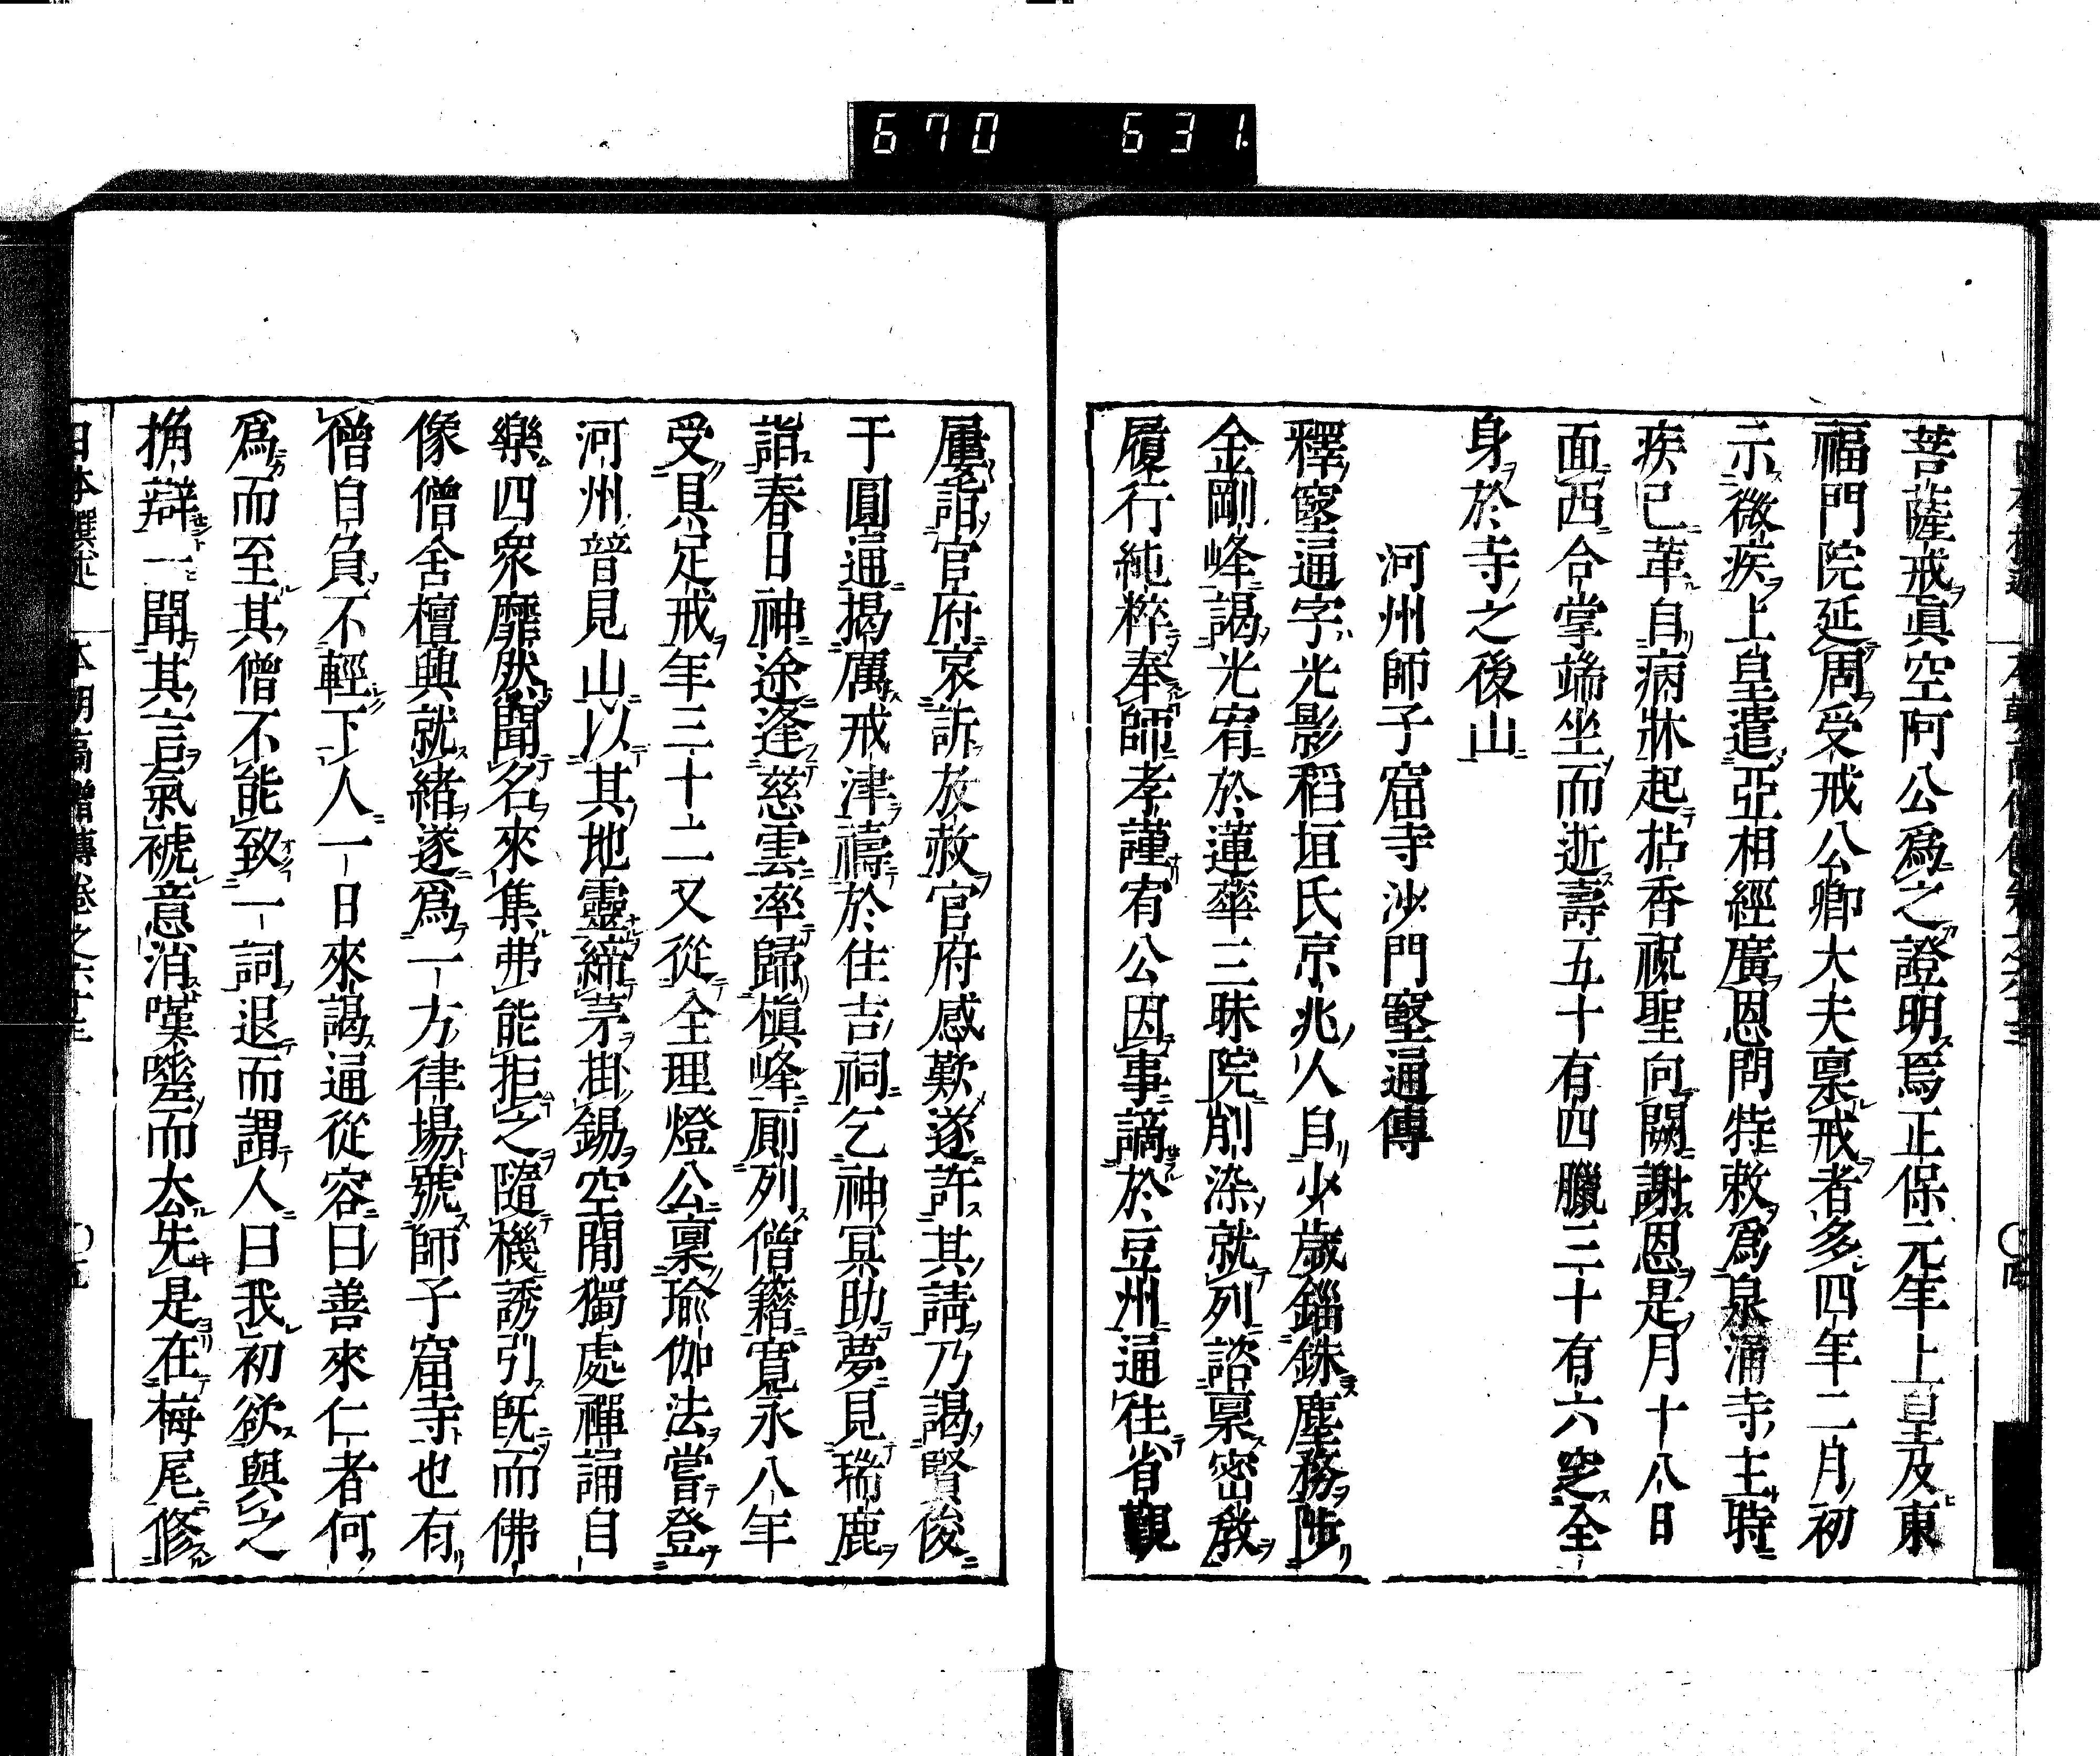 670 631
菩薩戒眞空阿公爲之證明焉正保元年上皇及東
福門院延周受戒公卿大夫禀戒者多四年二月初
示微疾上皇遣亞相經廣恩問特敕爲泉涌寺主時
疾已革自病牀起拈香祝聖向闕謝恩是月十八日
面西合掌端坐而逝壽五十有四臘三十有六窆全
身於寺之後山
河州師子窟寺沙門窒通傳
釋窒通字光影稻垣氏京兆人自少歲錙銖塵務陟
金剛峰謁光宥於蓮華三昧院削染就列諮禀密教
履行純粹奉師孝謹宥公因事謫於豆州通往省觀
屢詣官府哀訴放赦官府感歎遂許其請乃謁賢俊
于圓通揭厲戒津禱於住吉祠乞神冥助夢見瑞鹿
詣春日神途逢慈雲率歸槇峰厠列僧籍寛永八年
受具足戒年三十二又從全理燈公禀瑜伽法嘗登
河州普見山以其地靈締茅掛錫空閒獨處禪誦自
樂四衆靡然聞名來集弗能拒之隨機誘引既而佛
像僧舍檀與就緒遂爲一方律場號師子窟寺也有
僧自負不輕下人一日來謁通從容曰善來仁者何
爲而至其僧不能致一詞退而謂人曰我初欲與之
捔辯一聞其言氣褫意消嘆嗟而去先是在栂尾修
日本撰述 本朝高僧傳卷之六十三 〇五